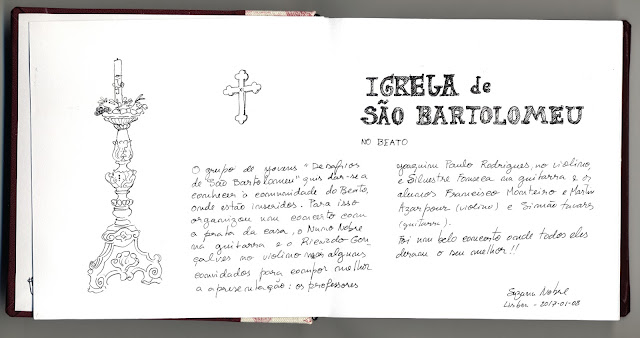 IGREJA de
SÃO BARTOLOMEU
NO BEATO
O grupo de jovens "Desafios
de São Bartolomeu" quis dar-se a
conhecer à comunidade do Beato,
onde estão inseridos. Para isso
organizou um concerto com
a prata da casa, o Nuno Nobre
na guitarra e o Ricardo Gon
çalves no violino mais alguns
convidados para compor melhor
a apresentação: os professores
Joaquim Paulo Rodrigues, no violino,
e Silvestre Fonseca na guitarra e os
alunos Francisco Monteiro e Martim
Azarpour (violino) e Simão Tavares
(guitarra).
Foi um belo concerto onde todos eles
deram o seu melhor!!
Suzana Nobre
Lisboa - 2017-01-08